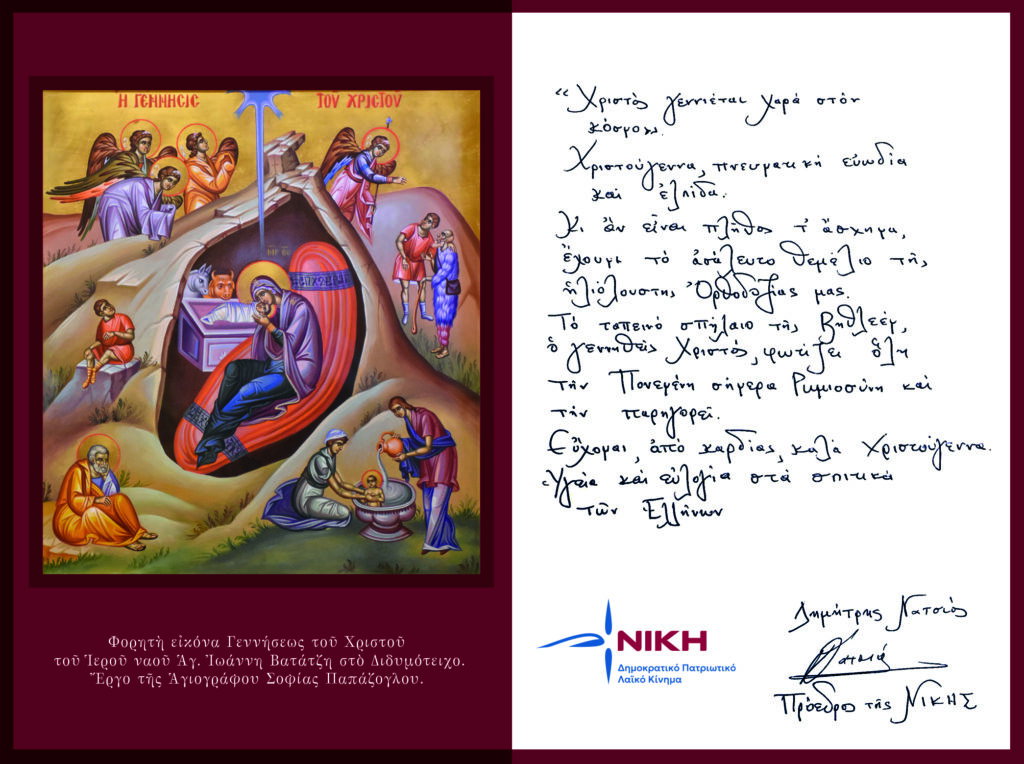 Η ΓΕΝΝΗΣΙΣ
ΤΟΥ ΧΡΙΣΤΟΥ
ΜΗΡ ΘΥ
Φορητὴ εἰκόνα Γεννήσεως τοῦ Χριστοῦ
τοῦ Ἱεροῦ ναοῦ Ἁγ. Ἰωάννη Βατάτζη στὸ Διδυμότειχο.
Ἔργο τῆς Ἁγιογράφου Σοφίας Παπάζογλου.
“Χριστὸς γεννιέται χαρά στὸν
κόσμο».
Χριστούγεννα, πνευματική εὐωδία
καὶ ἐλπίδα.
Κι ἂν εἶναι πλῆθος τ' ἄσχημα,
ἔχουμε τὸ ἀσάλευτο θεμέλιο τῆς
ἡλιόλουστης Ὀρθοδοξίας μας.
Τὸ ταπεινὸ σπήλαιο τῆς Βηθλεέμ,
ὁ γεννηθεὶς Χριστός, φωτίζει ὅλη
τὴν Πονεμένη σήμερα Ρωμιοσύνη καὶ
τὴν παρηγορεῖ.
Εὔχομαι, ἀπὸ καρδίας, καλὰ Χριστούγεννα.
Ὑγεία καὶ εὐλογία στὰ σπιτικὰ
τῶν Ἑλλήνων
ΝΙΚΗ
Δημοκρατικό Πατριωτικό
Λαϊκό Κίνημα
Δημήτρης Νατσιός
Πρόεδρος τῆς ΝΙΚΗΣ